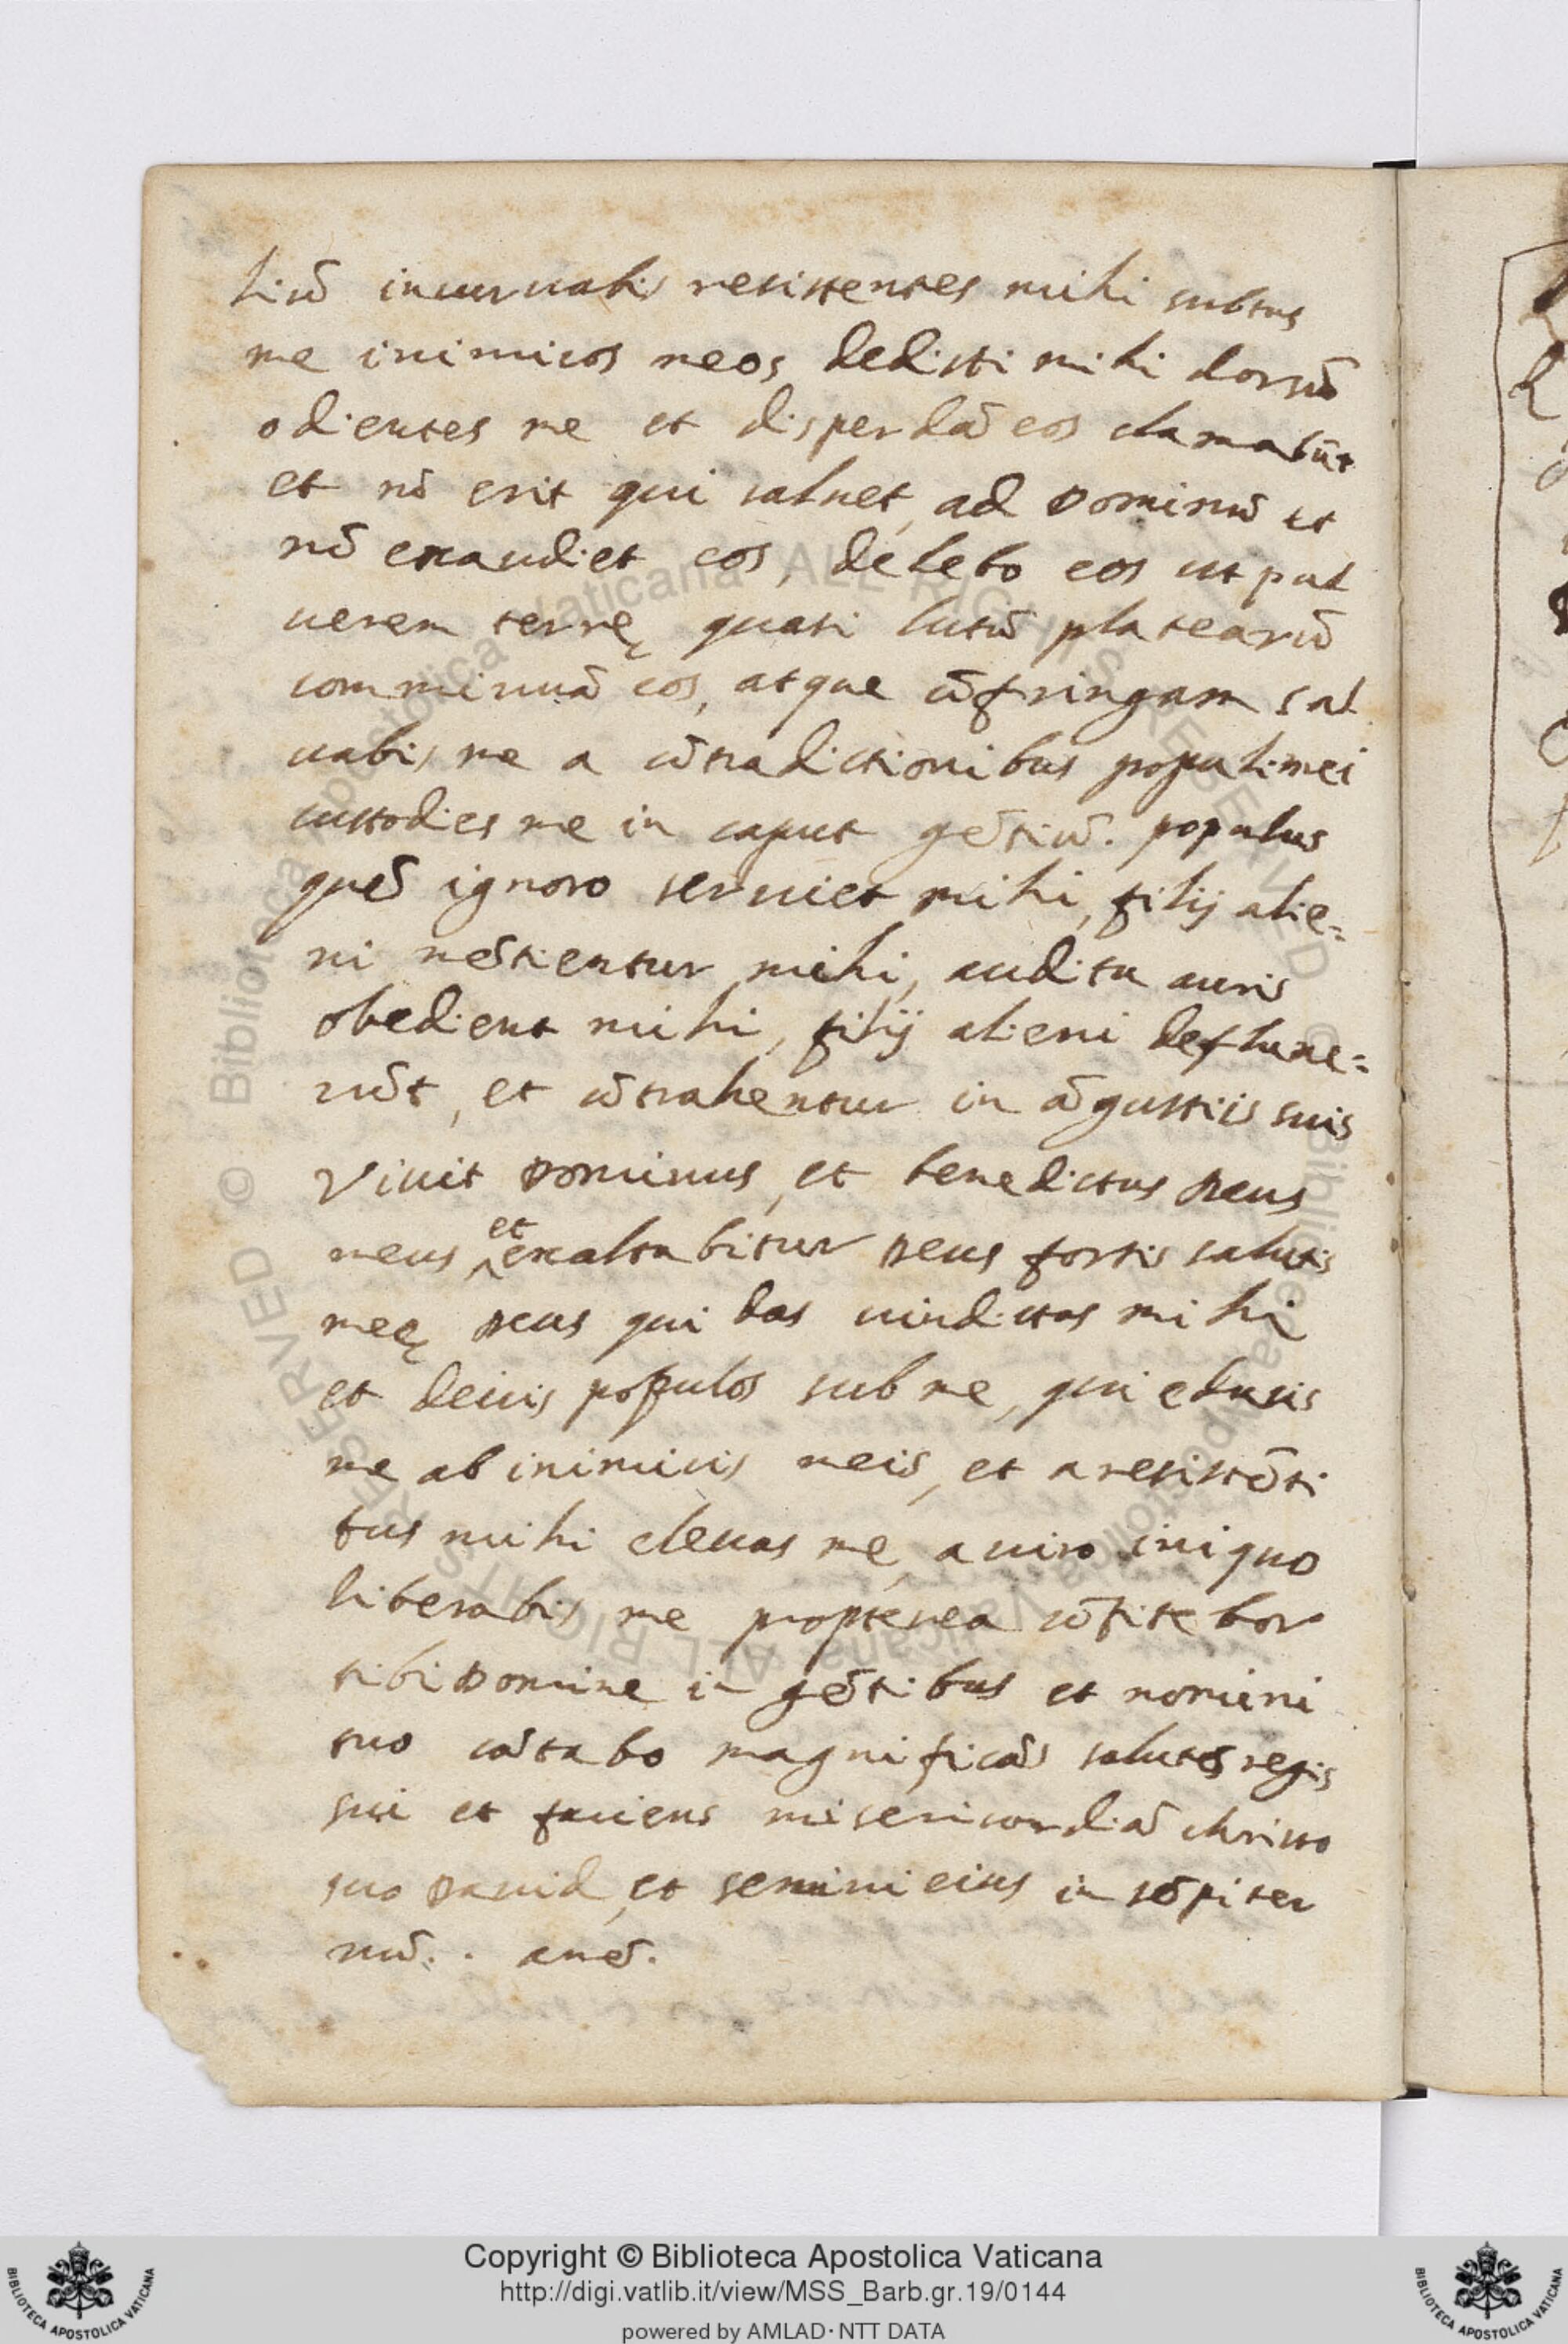 liũ incuruabis resistentes mihi subtus
me inimicos meos, dedisti mihi dorsũ
odientes me et disperdã eos clamabũt
et nõ erit qui saluet, ad Dominũ et
nõ exaudiet eos, delebo eos ut pul
uerem terrę quasi lutũ platearũ
comminuã eos, atque cõfringam sal
uabis me a cõtradictionibus populi mei
custodies me in caput gẽtiũ. populus
quẽ ignoro seruiet mihi, filij alie=
ni mẽtientur mihi, auditu auris
obedient mihi, filij alieni defluxe=
rũt, et cõtrahentur in ãgustiis suis
Viuit Dominus, et benedictus Deus
meus et exaltabitur Deus fortis salutis
meę Deus qui das uindictas mihi
et deiicis populos sub me, qui educis
me ab inimicis meis, et a resistẽti
bus mihi eleuas me, a uiro iniquo
liberabis me propterea cõfitebor
tibi Domine in gẽtibus et nomini
tuo cãtabo magnificãs salutes regis
sui et faciens misericordiã christo
suo Dauid, et semini eius in sẽpiter
nũ. . amẽ.
Copyright © Biblioteca Apostolica Vaticana
http://digi.vatlib.it/view/MSS_Barb.gr.19/0144
powered by AMLAD·NTT DATA